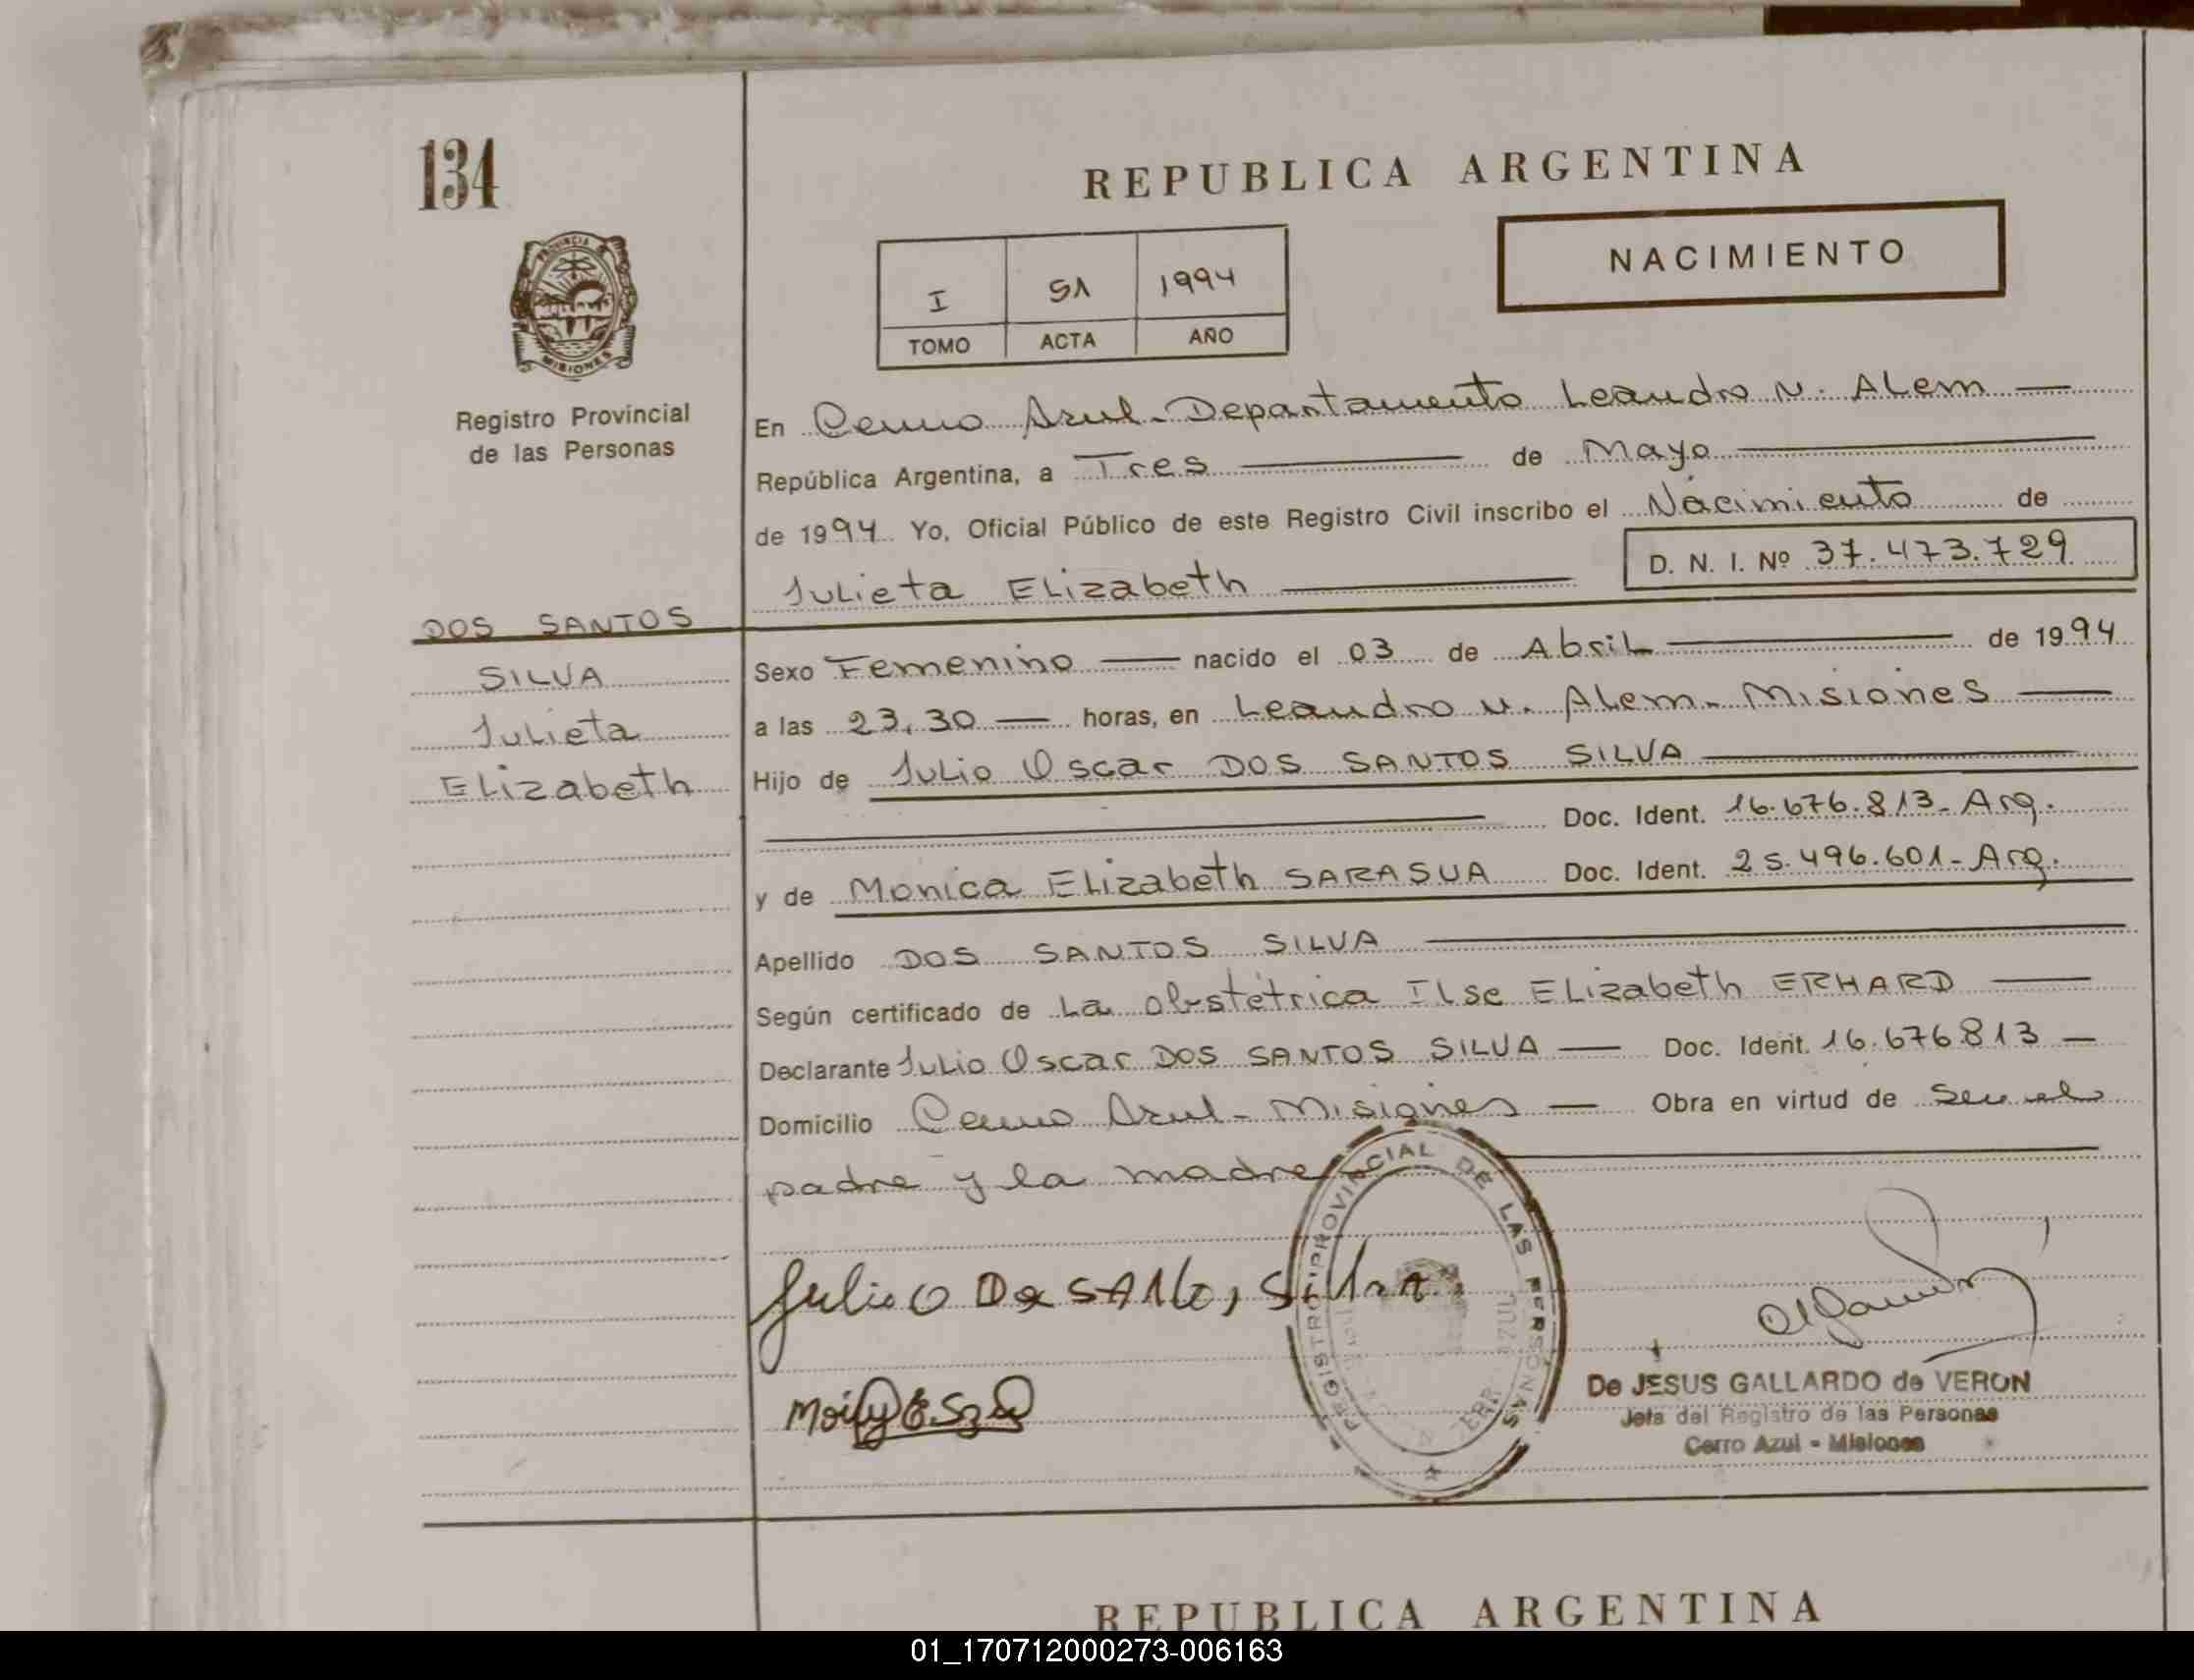 134
REPUBLICA ARGENTINA
PROVINCIA DE
MISIONES
Registro Provincial
de las Personas
I 51 1994
TOMO ACTA AÑO
NACIMIENTO
En Cerro Azul - Departamento Leandro N. Alem
República Argentina, a Tres de Mayo
de 1994 Yo, Oficial Público de este Registro Civil inscribo el Nacimiento de
Julieta Elizabeth
D. N. I. Nº 37.473.729
DOS SANTOS
SILVA
Julieta
Elizabeth
Sexo Femenino nacido el 03 de Abril de 1994
a las 23,30 horas, en Leandro N. Alem - Misiones
Hijo de Julio Oscar DOS SANTOS SILVA
Doc. Ident. 16.676.813 - Arg.
y de Monica Elizabeth SARASUA Doc. Ident. 25.496.601 - Arg.
Apellido DOS SANTOS SILVA
Según certificado de La obstétrica Ilse Elizabeth ERHARD
Declarante Julio Oscar DOS SANTOS SILVA Doc. Ident. 16.676813
Domicilio Cerro Azul - Misiones Obra en virtud de ser el
padre y la madre
REGISTRO PROVINCIAL DE LAS PERSONAS
De JESUS GALLARDO de VERON
Jefa del Registro de las Personas
Cerro Azul - Misiones
REPUBLICA ARGENTINA
01_170712000273-006163